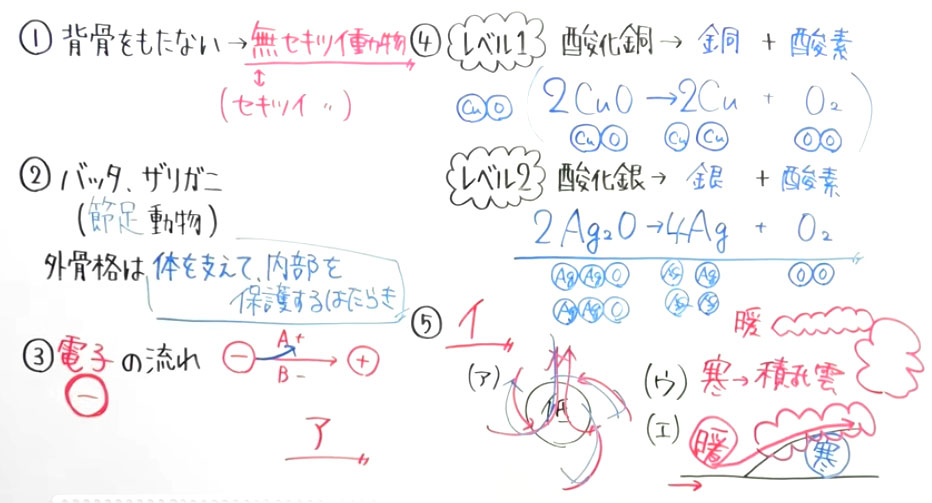 ① 背骨をもたない→無セキツイ動物
(セキツイ 〃)
② バッタ、ザリガニ
(節足動物)
外骨格は体を支えて、内部を
保護するはたらき
③ 電子の流れ
− A+ +
B−
−
ア
④ レベル1 酸化銅→ 銅 + 酸素
CuO (2CuO→2Cu + O₂)
CuO Cu Cu OO
レベル2 酸化銀→ 銀 + 酸素
2Ag₂O→4Ag + O₂
AgAgO Ag Ag OO
AgAgO Ag Ag
⑤ イ
(ア)
暖
(ウ) 寒→積乱雲
(エ) 暖 寒